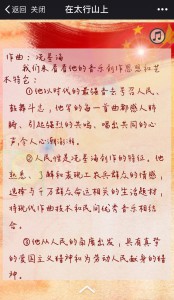 返回 关闭 在太行山上
作曲：冼星海
我们来看看他的音乐创作思想和艺
术特色：
①他以时代的最强音去号召人民、
鼓舞斗志，他写的每一首曲都感人肺
腑、引起强烈的共鸣，唱出共同的心
声，令人心潮澎湃。
②人民性是冼星海创作的特征，他
熟悉、了解和表现工农兵群众的情感，
选择与千万群众命运相关的生活题材，
将现代作曲技术和民间优秀音乐相结
合。
③他从人民的角度出发，具有真挚
的爱国主义精神和为劳动人民献身的精
神。